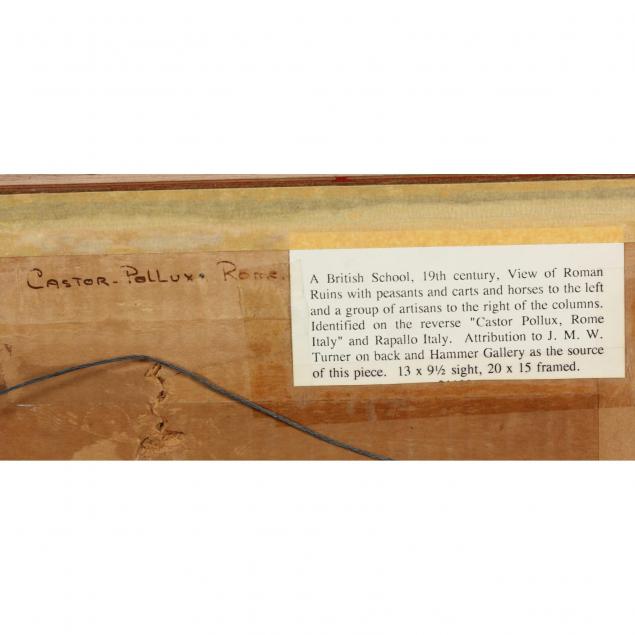 CASTOR-POLLUX. ROME.
A British School, 19th century, View of Roman
Ruins with peasants and carts and horses to the left
and a group of artisans to the right of the columns.
Identified on the reverse "Castor Pollux, Rome
Italy" and Rapallo Italy. Attribution to J. M. W.
Turner on back and Hammer Gallery as the source
of this piece. 13 x 9½ sight, 20 x 15 framed.